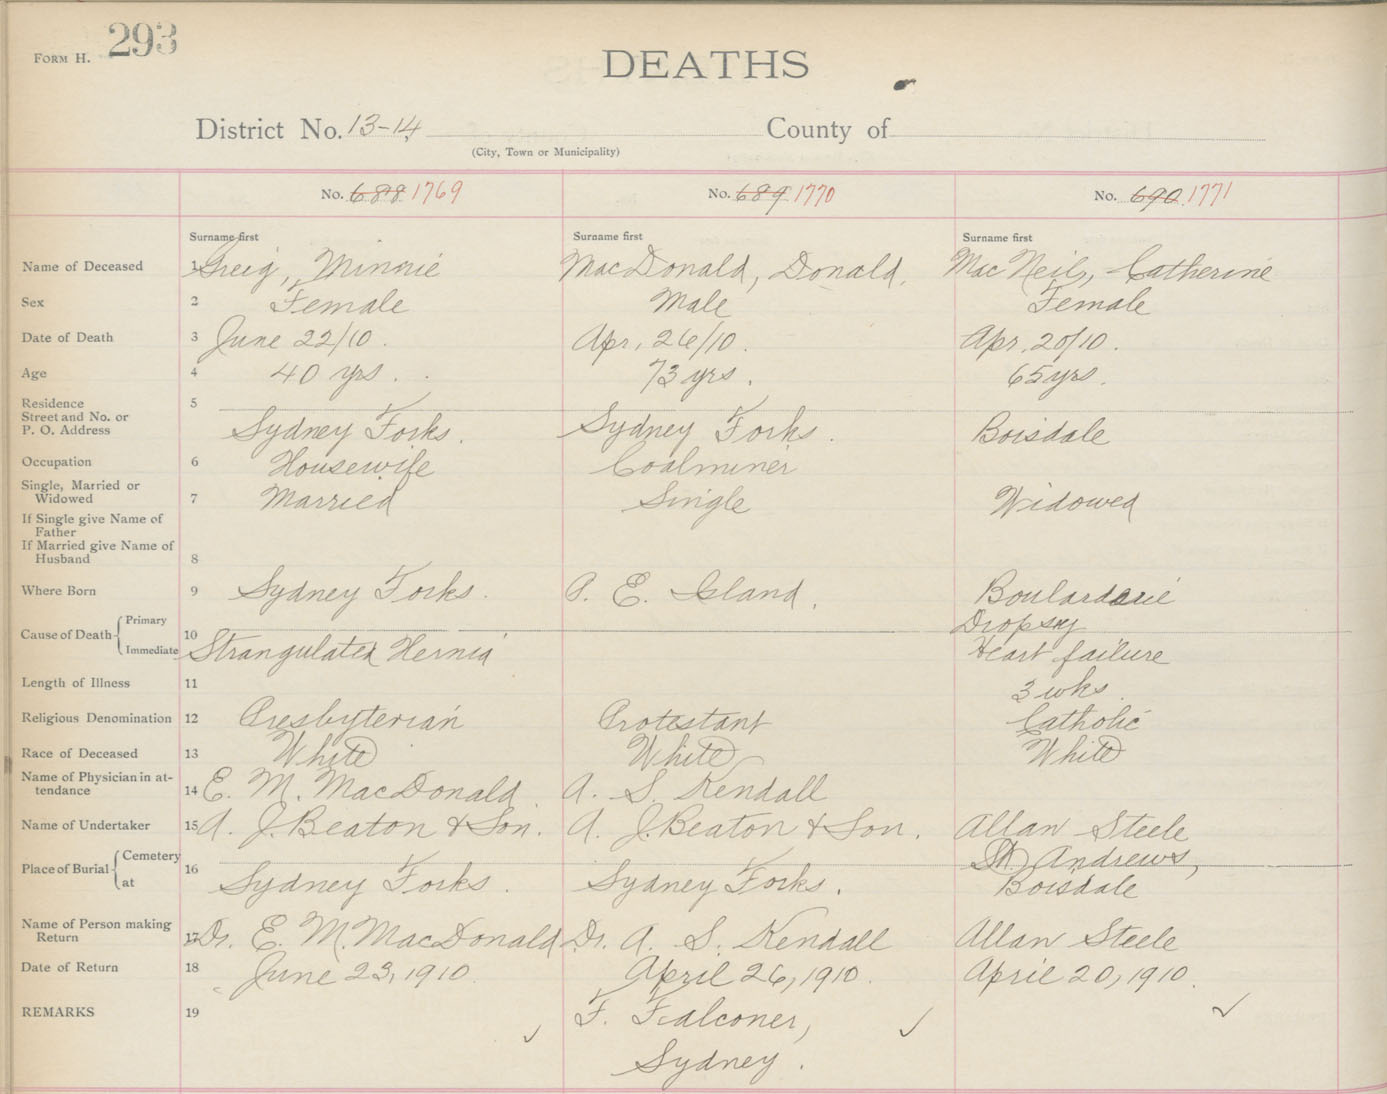 FORM H. 293
DEATHS
District No. 13-14 County of
(City, Town or Municipality)
No. 688 1769 No. 689 1770 No. 690 1771
Surname first Surname first Surname first
Name of Deceased 1 Greig, Minnie MacDonald, Donald. MacNeil, Catherine
Sex 2 Female Male Female
Date of Death 3 June 22/10. Apr. 26/10. Apr. 20/10.
Age 4 40 yrs. 73 yrs. 65 yrs.
Residence 5
Street and No. or
P. O. Address Sydney Forks. Sydney Forks. Boisdale
Occupation 6 Housewife Coalminer
Single, Married or
Widowed 7 Married Single Widowed
If Single give Name of
Father
If Married give Name of
Husband 8
Where Born 9 Sydney Forks. P. E. Island. Boulardarie
Cause of Death Primary 10 Dropsy
Immediate Strangulated Hernia Heart failure
Length of Illness 11 3 wks.
Religious Denomination 12 Presbyterian Protestant Catholic
Race of Deceased 13 White White White
Name of Physician in at-
tendance 14 E. M. MacDonald. A. S. Kendall
Name of Undertaker 15 A. J. Beaton & Son. A. J. Beaton & Son. Allan Steele
Place of Burial Cemetery 16 St. Andrews,
at Sydney Forks. Sydney Forks. Boisdale
Name of Person making
Return 17 Dr. E. M. MacDonald Dr. A. S. Kendall Allan Steele
Date of Return 18 June 23, 1910. April 26, 1910. April 20, 1910.
REMARKS 19 F. Falconer,
Sydney.